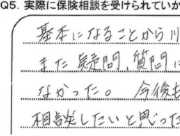 Q5. 実際に保険相談を受けられていか
基本になることから川
また疑問、質問に
なかった。 今後も
相談したいと思った